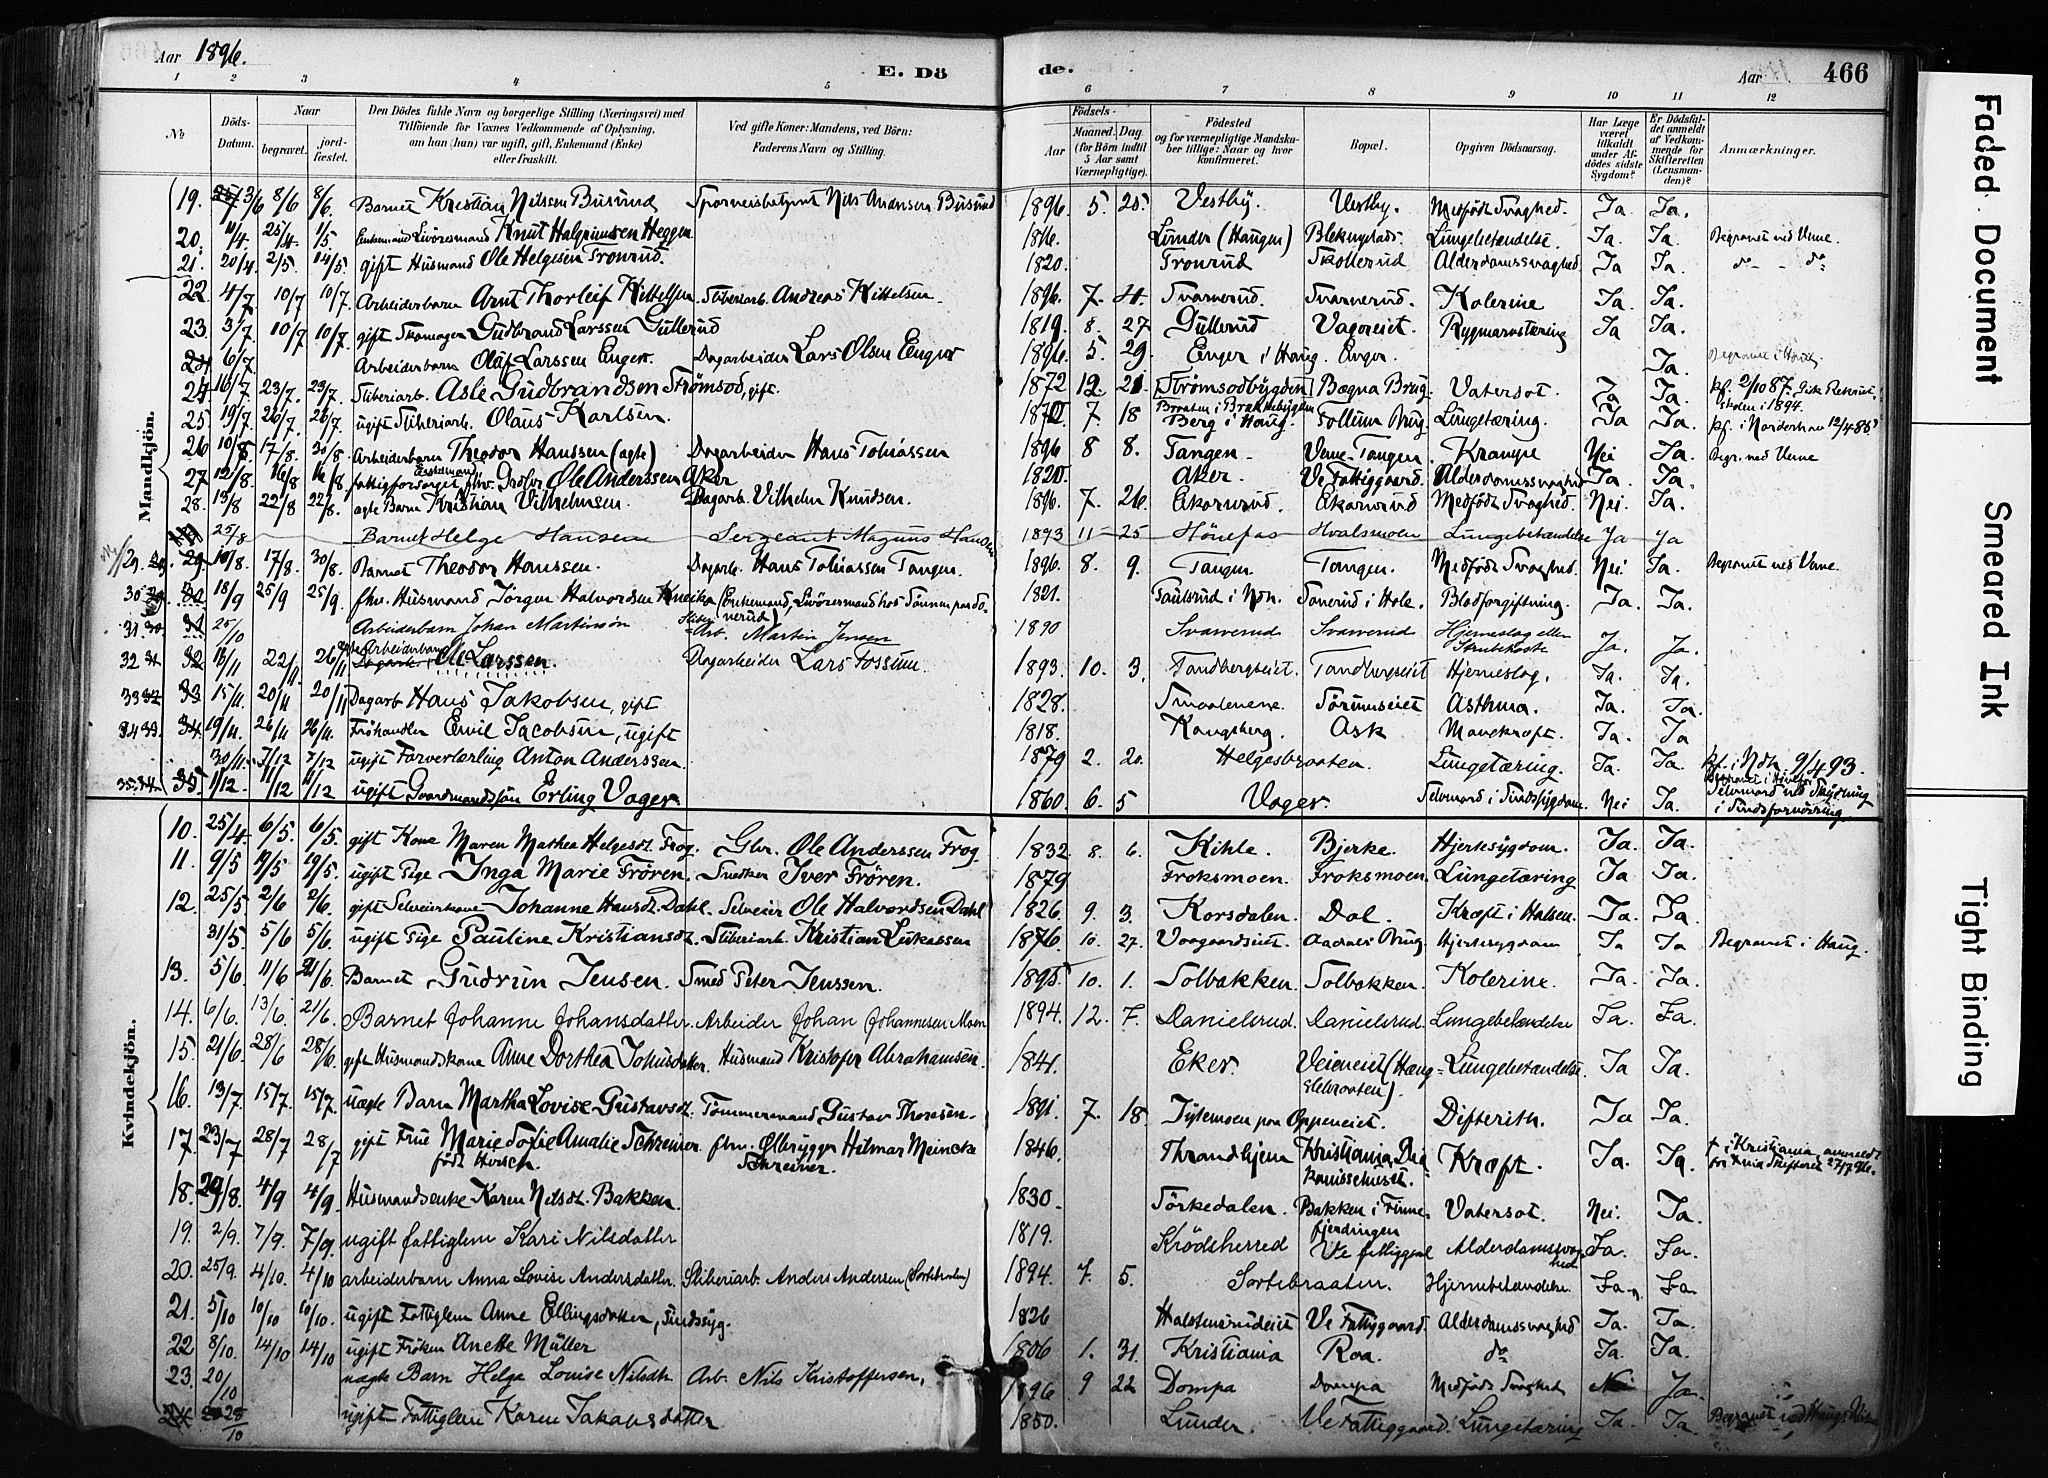 Aar 1896.
E. Döde.
Aar 466
1 2 3 4 5 6 7 8 9 10 11 12
No
Döds-Datum.
Naar begravet. jordfæstet.
Den Dödes fulde Navn og borgerlige Stilling (Næringsvei) med Tilföiende for Voxnes Vedkommende af Oplysning, om han (hun) var ugift, gift, Enkemand (Enke) eller fraskilt.
Ved gifte Koner: Mandens, ved Börn: Faderens Navn og Stilling.
Födsels- Aar Maaned. Dag. (for Börn indtil 5 Aar samt Værnepligtige).
Födested og for værnepligtige Mandskaber tillige: Naar og hvor konfirmeret.
Bopæl.
Opgiven Dödsaarsag.
Har Læge været tilkaldt under Afdödes sidste Sygdom?
Er Dödsfaldet anmeldt af Vedkommende for Skifteretten (Lensmanden)?
Anmærkninger.
Mandkjön.
19. 3/6 8/6 8/6. Barnet Kristian Nilsen Busund Nils Andersen Busund 1896. 5. 25. Vestby. Vestby. Medfödt Svaghed. Ja. Ja.
20. 11/4. 25/4. 1/5 Enkemand Livöresmand Knut Halgrimsen Heggen Lunder (Haugen) Lungebetændelse. Ja. Ja. Begravet ved Verne.
21. 20/4. 2/5. 14/5. gift Husmand Ole Helgesen Tronrud. 1820. Tronrud Skollerud Alderdomssvaghed Ja Ja. do - do
22. 4/7 10/7 10/7. Arbeiderbarn Arnt Thorleif Kittelsen. Sliberiarb. Andreas Kittelsen. 1896. 7. 4. Svarverud. Svarverud. Kolerine Ja. Ja.
23. 3/7. 10/7 10/7. gift Skomager Gudbrand Larssen Gullerud 1819. 8. 27 Gullerud Rygmarvstæring Ja Ja.
6/7. Arbeiderbarn Olaf Larssen Enger. Dagarbeider Lars Olsen Enger 1896. 5. 29. Enger i Haug. Enger. Ja. Begravet i Haug.
24 16/7 23/7. 23/7. Sliberiarb. Asle Gudbrandsen Strömsod, gift. 1872 12. 21. [Strömsodbygden] Bægna Brug. Vatersot. Ja Ja. kf. 2/10 87. i 1894.
25. 19/7 26/7. 26/7. ugift Sliberiarb. Olaus Karlsen. 7. 18 Berg i Haug. Follum Brug. Lungetæring. Ja Ja. kf. i Norderhov 12/4 85.
26 10/8 17/8. 30/8. Arbeiderbarn Theodor Hanssen (ægte) Dagarbeider Hans Tobiassen 1896 8 8. Tangen Verne-Tangen Krampe Nei Ja. Begr. ved Verne
27. 12/8. 16/8 16/8 fattigforsörget fhv. Enkemand Ole Anderssen Aker Aker. Ve Fattiggaard. Alderdomssvaghed Ja. Ja.
28. 13/8 22/8 22/8. ægte Barn Kristian Vilhelmsen. Dagarb. Vilhelm Knudsen. 1896. 7. 26. Ekornrud. Ekornrud Medfödt Svaghed. Nei. Ja.
25/8 Barnet Helge Hansen Sergeant Magnus Hansen 1893 11 25 Hönefos Hvalsmoen Lungebetændelse Ja Ja
29. 10/8. 17/8. 30/8. Barnet Theodor Hanssen. Dagarb. Hans Tobiassen Tangen. 1896. 8. 9. Tangen Tangen. Medfödt Svaghed. Nei. Ja. Begravet ved Verne.
30 18/9 25/9 25/9. fhv. Husmand Jörgen Halvorsen (Enkemand, Livöresmand hos 1821. i Ndh. i Hole. Blodforgiftning. Ja. Ja.
31. 25/10 Arbeiderbarn Johan Martinsön Arb. Martin Jensen 1890 Svarverud Svarverud Hjerneslag eller Strubehoste Ja. Ja.
32 13/11 22/11 26/11 Arbeiderbarn Ole Larssen. Dagarbeider Lars Fossum. 1893. 10. 3. Tandbergseiet. Tandbergseiet Hjerneslag. Ja. Ja.
33 15/11. 20/11 20/11 Dagarb Hans Jakobsen, gift 1828. Smaalenene. Asthma. Ja. Ja.
34 19/11. 26/11 26/11. Fröhandler Emil Jacobsen, ugift 1818. Kongsberg. Ask Mavekræft. Ja. Ja
30/11. 7/12 7/12 ugift Farverlærling Anton Anderssen. 1879 2. 20. Helgesbraaten. Lungetæring. Ja. Ja kf. i Ndh. 9/4 93.
35 11/12. 11/12 11/12 ugift Gaardmandssön Erling Vager. 1860. 6. 5 Vager. Selvmord i Sindssygdom Nei Ja. Selvmord ved Skydning i Sindsforvirring.
Kvindekjön.
10. 25/4. 6/5. 6/5. gift Kone Maren Mathea Helgesd. Frog. Gbr. Ole Anderssen Frog 1832. 8. 6. Kihle. Bjerke. Hjertesygdom. Ja. Ja.
11. 9/5 19/5 19/5. ugift Pige Inga Marie Frören. Snedker Iver Frören. 1879 Froksmoen. Froksmoen. Lungetæring Ja Ja.
12. 25/5. 2/6 2/6. gift Selveierkone Johanne Hansd. Dahl. Selveier Ole Halvordsen Dahl 1826. 9. 3. Korsdalen. Dal. Kræft i Halsen. Ja. Ja.
31/5. 5/6 5/6. ugift Pige Pauline Kristiansd. Sliberiarb. Kristian Lukassen 1876. 10. 27. Vaagaardseiet. Aadals Brug Hjertesygdom Ja Ja. Begravet i Haug.
13. 5/6. 11/6 21/6. Barnet Gudrun Jensen. Smed Peter Jenssen. 1895 10. 1. Solbakken. Solbakken. Kolerine. Ja. Ja.
14. 6/6. 13/6. 21/6. Barnet Johanne Johansdatter. Arbeider Johan Johannesen Moen 1894. 12. 7. Danielsrud. Danielsrud. Lungebetændelse Ja. Ja.
15. 21/6. 28/6 28/6. gift Husmandskone Anne Dorthea Johnsdatter. Husmand Kristofer Abrahamsen. 1841. Eker. Veieneiet (Haugslebraaten). Lungebetændelse. Ja Ja.
16. 13/7. 15/7. 15/7. uægte Barn Martha Lovise Gustavsd. Tömmermand Gustav Thoresen. 1891. 7. 18. Oppeneiet. Difterith. Ja Ja.
17. 23/7 28/7 28/7 gift Frue Marie Sofie Amalie Schreiner född Hirsch. fhv. Ölbrygger Hilmar Meincke Schreiner. 1846. Throndhjem Kristiania, Diakonissehuset. Kræft. Ja. Ja. † i Kristiania, anmeldt for Kria Skifteret 27/7 96.
18. 29/8. 4/9 4/9. Husmandsenke Karen Nilsd. Bakken. 1830. Sörkedalen. Bakken i Finnefjerdingen Vatersot. Nei. Ja.
19. 2/9. 7/9. 7/9. ugift fattiglem Kari Nilsdatter 1819. Krödsherred Ve fattiggaard Alderdomssvaghed Ja. Ja.
20. 25/9. 4/10. 4/10 arbeiderbarn Anna Lovise Andersdatter. Sliberiarb. Anders Andersen (Sortebraaten) 1894. 7. 5. Sortebraaten. Hjernebetændelse. Ja. Ja.
21. 5/10 10/10 10/10. ugift Fattiglem Anne Ellingsdatter, Sindssyg. 1826 Halstenrudeiet Ve Fattiggaard. Alderdomssvaghed Ja. Ja.
22 8/10. 14/10 14/10 ugift Fröken Anette Müller 1806 1. 31. Kristiania Roa. do Ja. Ja.
23. 20/10 uægte Barn Helga Louise Nilsdtr. Arb. Nils Kristoffersen, 1896 9 22 Dompa Dompa Medfödt Svaghed Nei Ja.
28/10 ugift Fattiglem Karen Jakobsdatter 1850. Lunder. Ve Fattiggaard. Lungetæring Ja. Ja. Begravet ved Haugs Kirke
Faded Document
Smeared Ink
Tight Binding